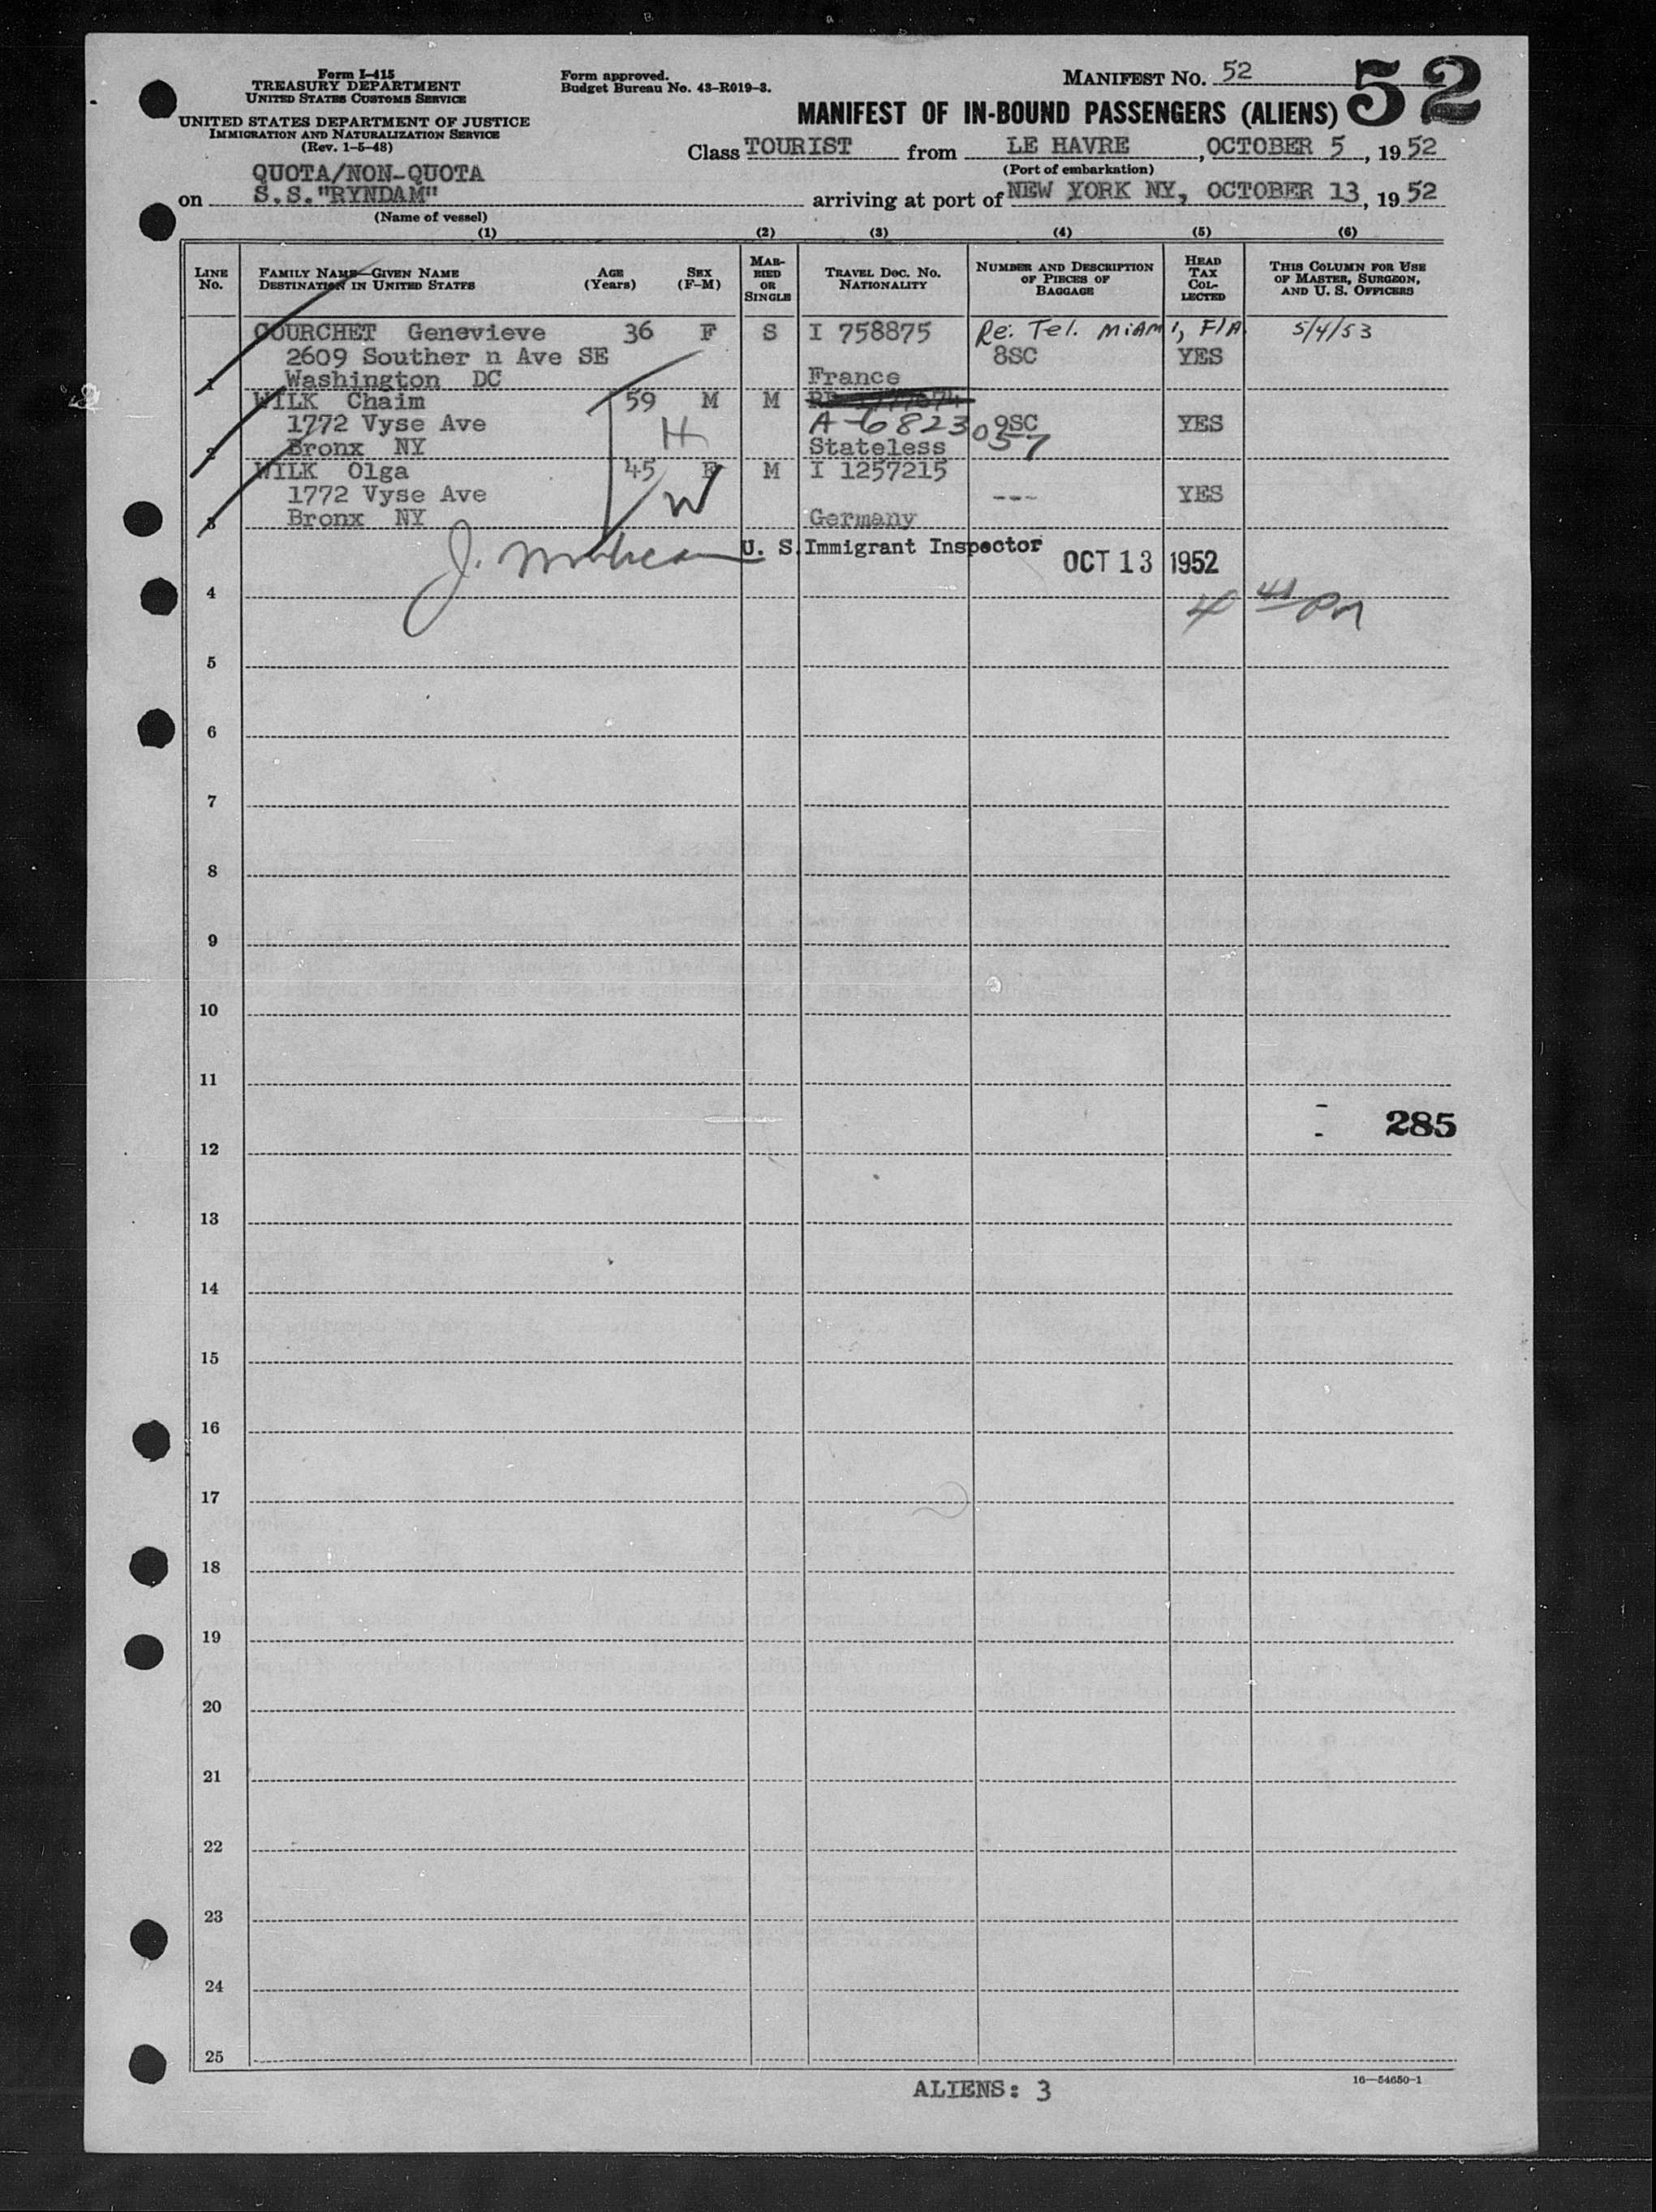 Form I-415
TREASURY DEPARTMENT
UNITED STATES CUSTOMS SERVICE
UNITED STATES DEPARTMENT OF JUSTICE
IMMIGRATION AND NATURALIZATION SERVICE
(Rev. 1-5-48)
Form approved.
Budget Bureau No. 43-R019-3.
MANIFEST NO. 52
52
MANIFEST OF IN-BOUND PASSENGERS (ALIENS)
Class TOURIST from LE HAVRE, OCTOBER 5, 1952
(Port of embarkation)
QUOTA/NON-QUOTA
on S.S."RYNDAM" arriving at port of NEW YORK NY, OCTOBER 13, 1952
(Name of vessel)
(1) (2) (3) (4) (5) (6)
LINE NO.
FAMILY NAME—GIVEN NAME
DESTINATION IN UNITED STATES
AGE (Years)
SEX (F-M)
MARRIED OR SINGLE
TRAVEL DOC. NO.
NATIONALITY
NUMBER AND DESCRIPTION OF PIECES OF BAGGAGE
HEAD TAX COLLECTED
THIS COLUMN FOR USE OF MASTER, SURGEON, AND U. S. OFFICERS
COURCHET Genevieve 36 F S I 758875 Re: Tel. MIAMI, FlA. 5/4/53
2609 Souther n Ave SE 8SC YES
1 Washington DC France
WILK Chaim 59 M M
1772 Vyse Ave H A-6823057 9SC YES
2 Bronx NY Stateless
WILK Olga 45 F M I 1257215
1772 Vyse Ave W --- YES
3 Bronx NY Germany
U. S. Immigrant Inspector OCT 13 1952
4 4 41 PM
5
6
7
8
9
10
11
285
12
13
14
15
16
17
18
19
20
21
22
23
24
25
ALIENS: 3
16—54650-1